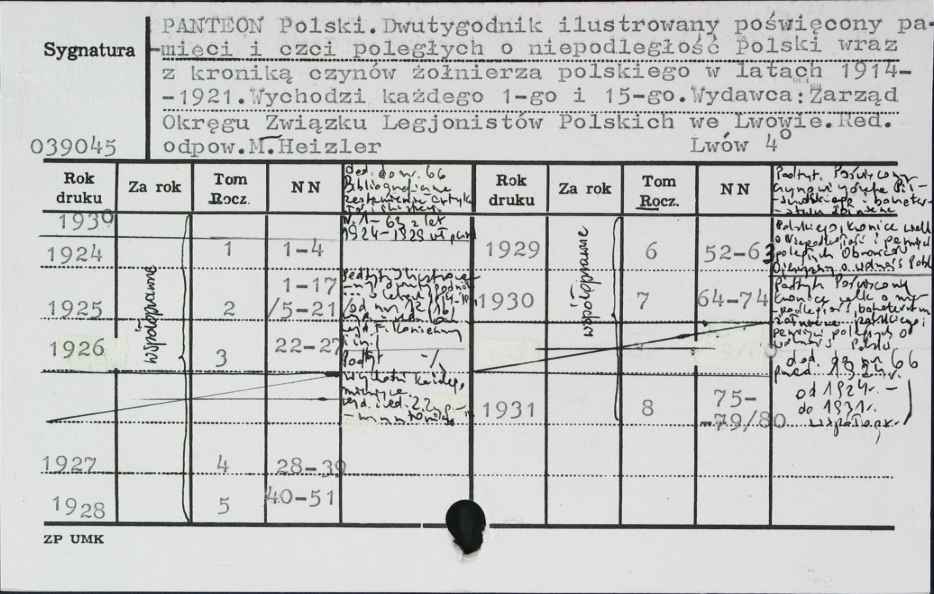 PANTEON Polski. Dwutygodnik ilustrowany poświęcony pa-
Sygnatura
mięci i czci poległych o niepodległość Polski wraz
z kroniką czynów żołnierza polskiego w latach 1914-
-1921. Wychodzi każdego 1-go i 15-go. Wydawca: Zarząd
Okręgu Związku Legjonistów Polskich we Lwowie. Red.
039045
odpow. M. Heizler Lwów 4°
Rok druku Za rok Tom Rocz. NN
Rok druku Za rok Tom Rocz. NN
1930
1924 1 1-4
1925 2 1-17 /5-21/
1926 3 22-27
1927 4 28-39
1928 5 40-51
współoprawne
Ded. do nr. 66
Bibliograficzne
N. 1-63 z lat
1924-1929
1929 6 52-63
1930 7 64-74
1931 8 75-79/80
współoprawne
Podtyt. Poświęcony
Polskiej kronice walk
o Niepodległość i pamięci
poległych Obrońców
Podtyt. Poświęcony
kronice walk o nie-
podległość, bohaterom
pamięci poległych o
wolność Polski
dod. do nr 66
od 1924r. -
do 1931r.
ZP UMK